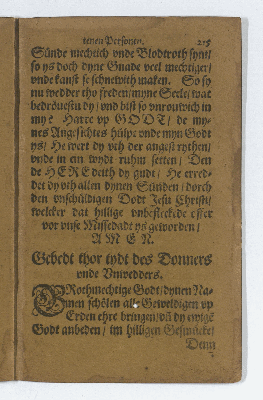 tenen Personen. 215
Sünde mechtich vnde Blodtroth synt/
so ys doch dyne Gnade veel mechtiger/
vnde kanst se schnewith maken. So sy
nu wedder tho freden/ myne Seele/ wat
bedröuestu dy/ vnd bist so vnrouwich in
my? Harre vp GODT/ de my-
nes Angesichtes hülpe vnde myn Godt
ys/ He wert dy vth der angest rythen/
vnde in ein wydt ruhm setten/ Den
de HERE deith dy gudt/ He erred-
det dy vth allen dynen Sünden/ dorch
den vnschüldigen Dodt Jesu Christi/
welcker dat hillige vnbesteckede offer
vor vnse Missedadt ys geworden/
A M E N.
Gebedt thor tydt des Donners
vnde Vnwedders.
GRothmechtige Godt/ dynen Na-
men schölen alle Geweldigen vp
Erden ehre bringen/ vñ dy ewigē
Godt anbeden/ im hilligen Gesmücke/
Denn